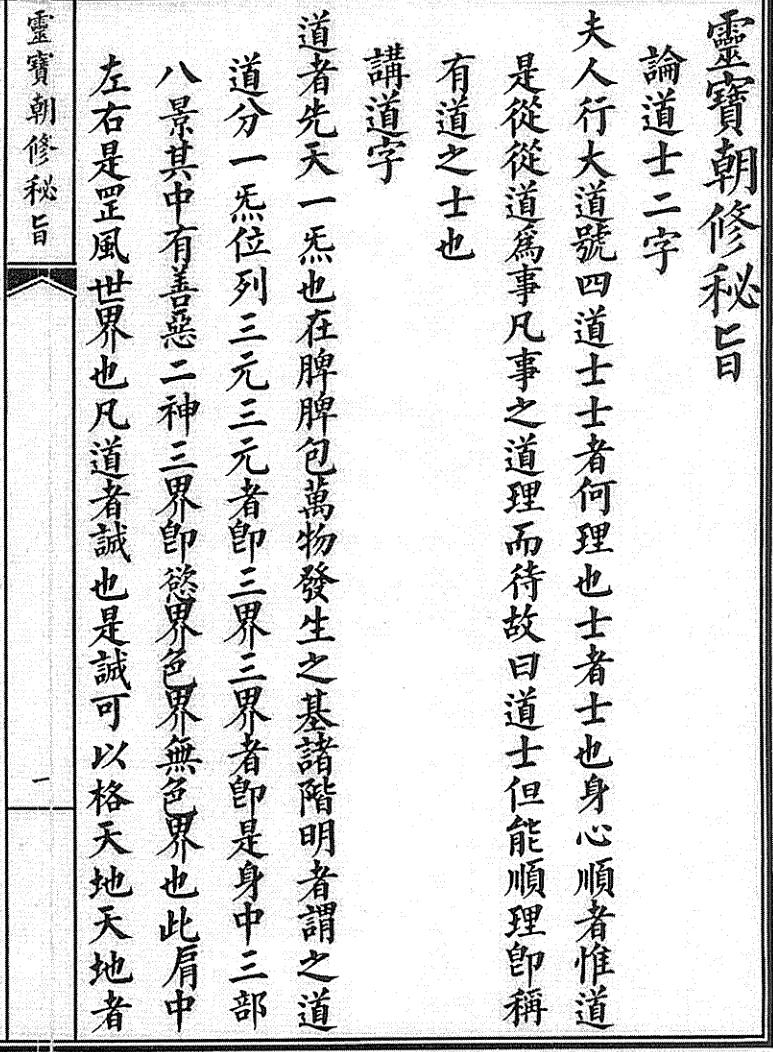 靈寶朝修秘旨
論道士二字
夫人行大道號四道士士者何理也士者士也身心順者惟道
是從從道爲事凡事之道理而待故曰道士但能順理卽稱
有道之士也
講道字
道者先天一炁也在脾脾包萬物發生之基諸階明者謂之道
道分一炁位列三元三元者卽三界三界者卽是身中三部
八景其中有善惡二神三界卽慾界色界無色界也此肩中
左右是罡風世界也凡道者誠也是誠可以格天地天地者
靈寶朝修秘旨
一